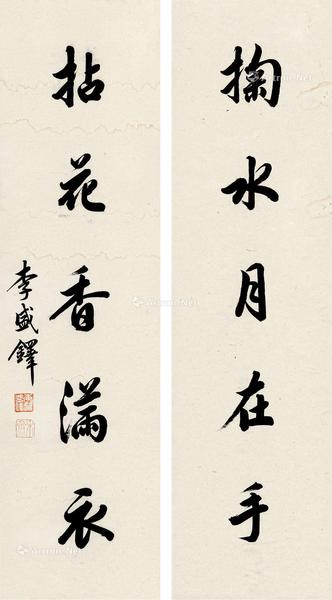 掬水月在手
拈花香滿衣
李盛鐸